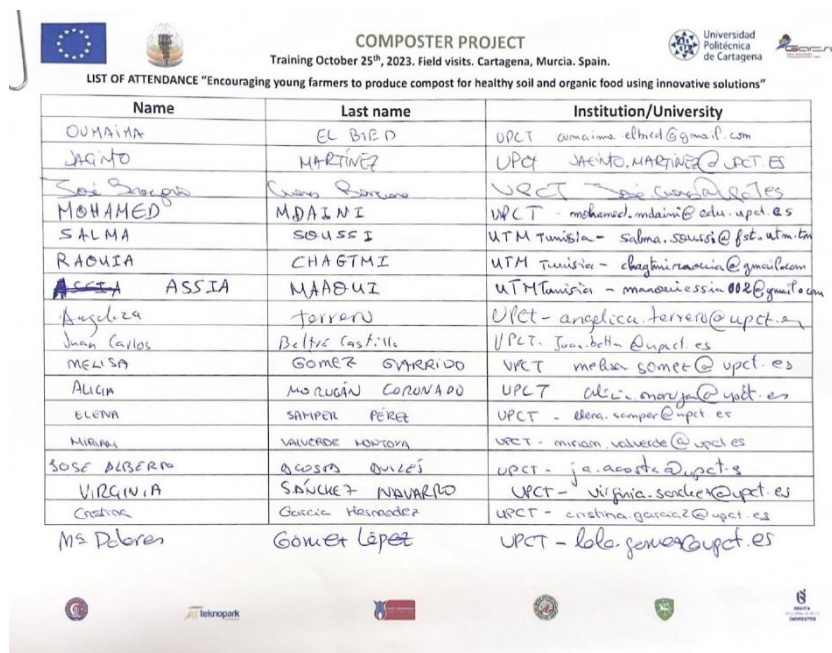 COMPOSTER PROJECT
Universidad Politécnica de Cartagena
Training October 25th, 2023. Field visits. Cartagena, Murcia. Spain.
LIST OF ATTENDANCE "Encouraging young farmers to produce compost for healthy soil and organic food using innovative solutions"
Name Last name Institution/University
OUMAIMA EL BIED UPCT oumaima.elbied@gmail.com
JACINTO MARTÍNEZ UPCT JACINTO.MARTINEZ@UPCT.ES
José UPCT
MOHAMED MDAINI UPCT - mohamed.mdaini@edu.upct.es
SALMA SOUSSI UTM Tunisia - salma.soussi@fst.utm.tn
RAOUIA CHAGTMI UTM Tunisia - chagtmiraouia@gmail.com
ASSIA ASSIA MAAOUI UTM Tunisia -
Angelica Terrero UPCT - angelica.terrero@upct.es
Juan Carlos Beltrá Castillo UPCT.
MELISA GOMEZ GARRIDO UPCT
ALICIA MORUGÁN CORONADO UPCT
ELENA SAMPER PÉREZ UPCT - elena.samper@upct.es
MIRIAM VALVERDE MONTOYA UPCT - miriam.valverde@upct.es
JOSE ALBERTO ACOSTA AVILÉS UPCT - ja.acosta@upct.es
VIRGINIA SÁNCHEZ NAVARRO UPCT - virginia.sanchez@upct.es
Cristina García Hernandez UPCT - cristina.garcia2@upct.es
Mª Dolores Gómez López UPCT - lola.gomez@upct.es
teknopark